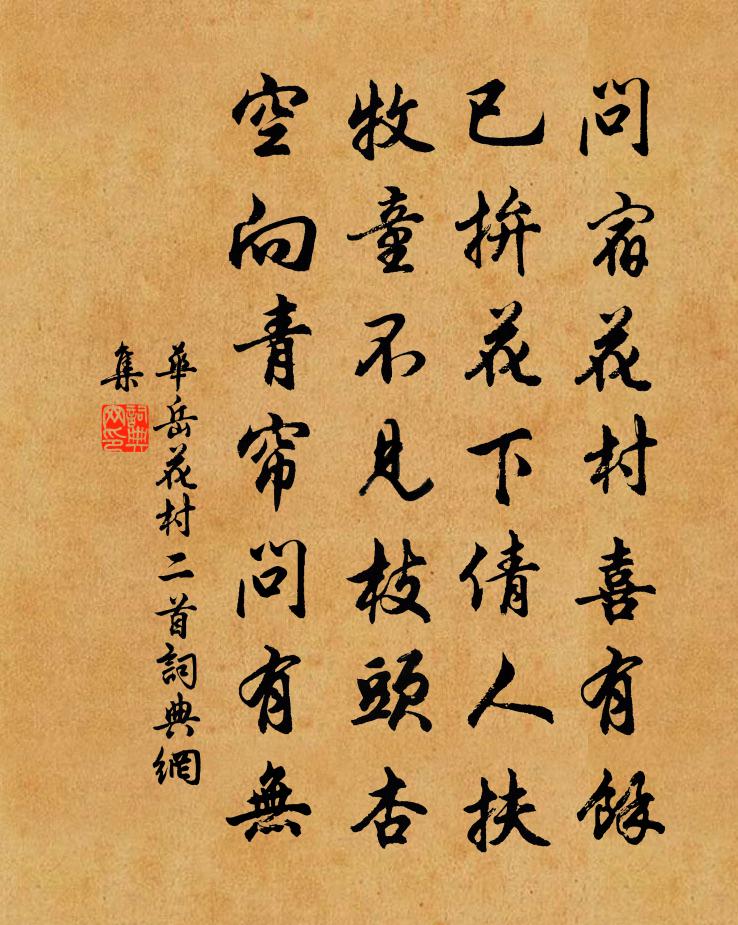 問宿花村喜有餘
已拚花下倩人扶
牧童不見枝頭杏
空向青帘問有無
華岳花村二首詞典網
集
詞典
网印